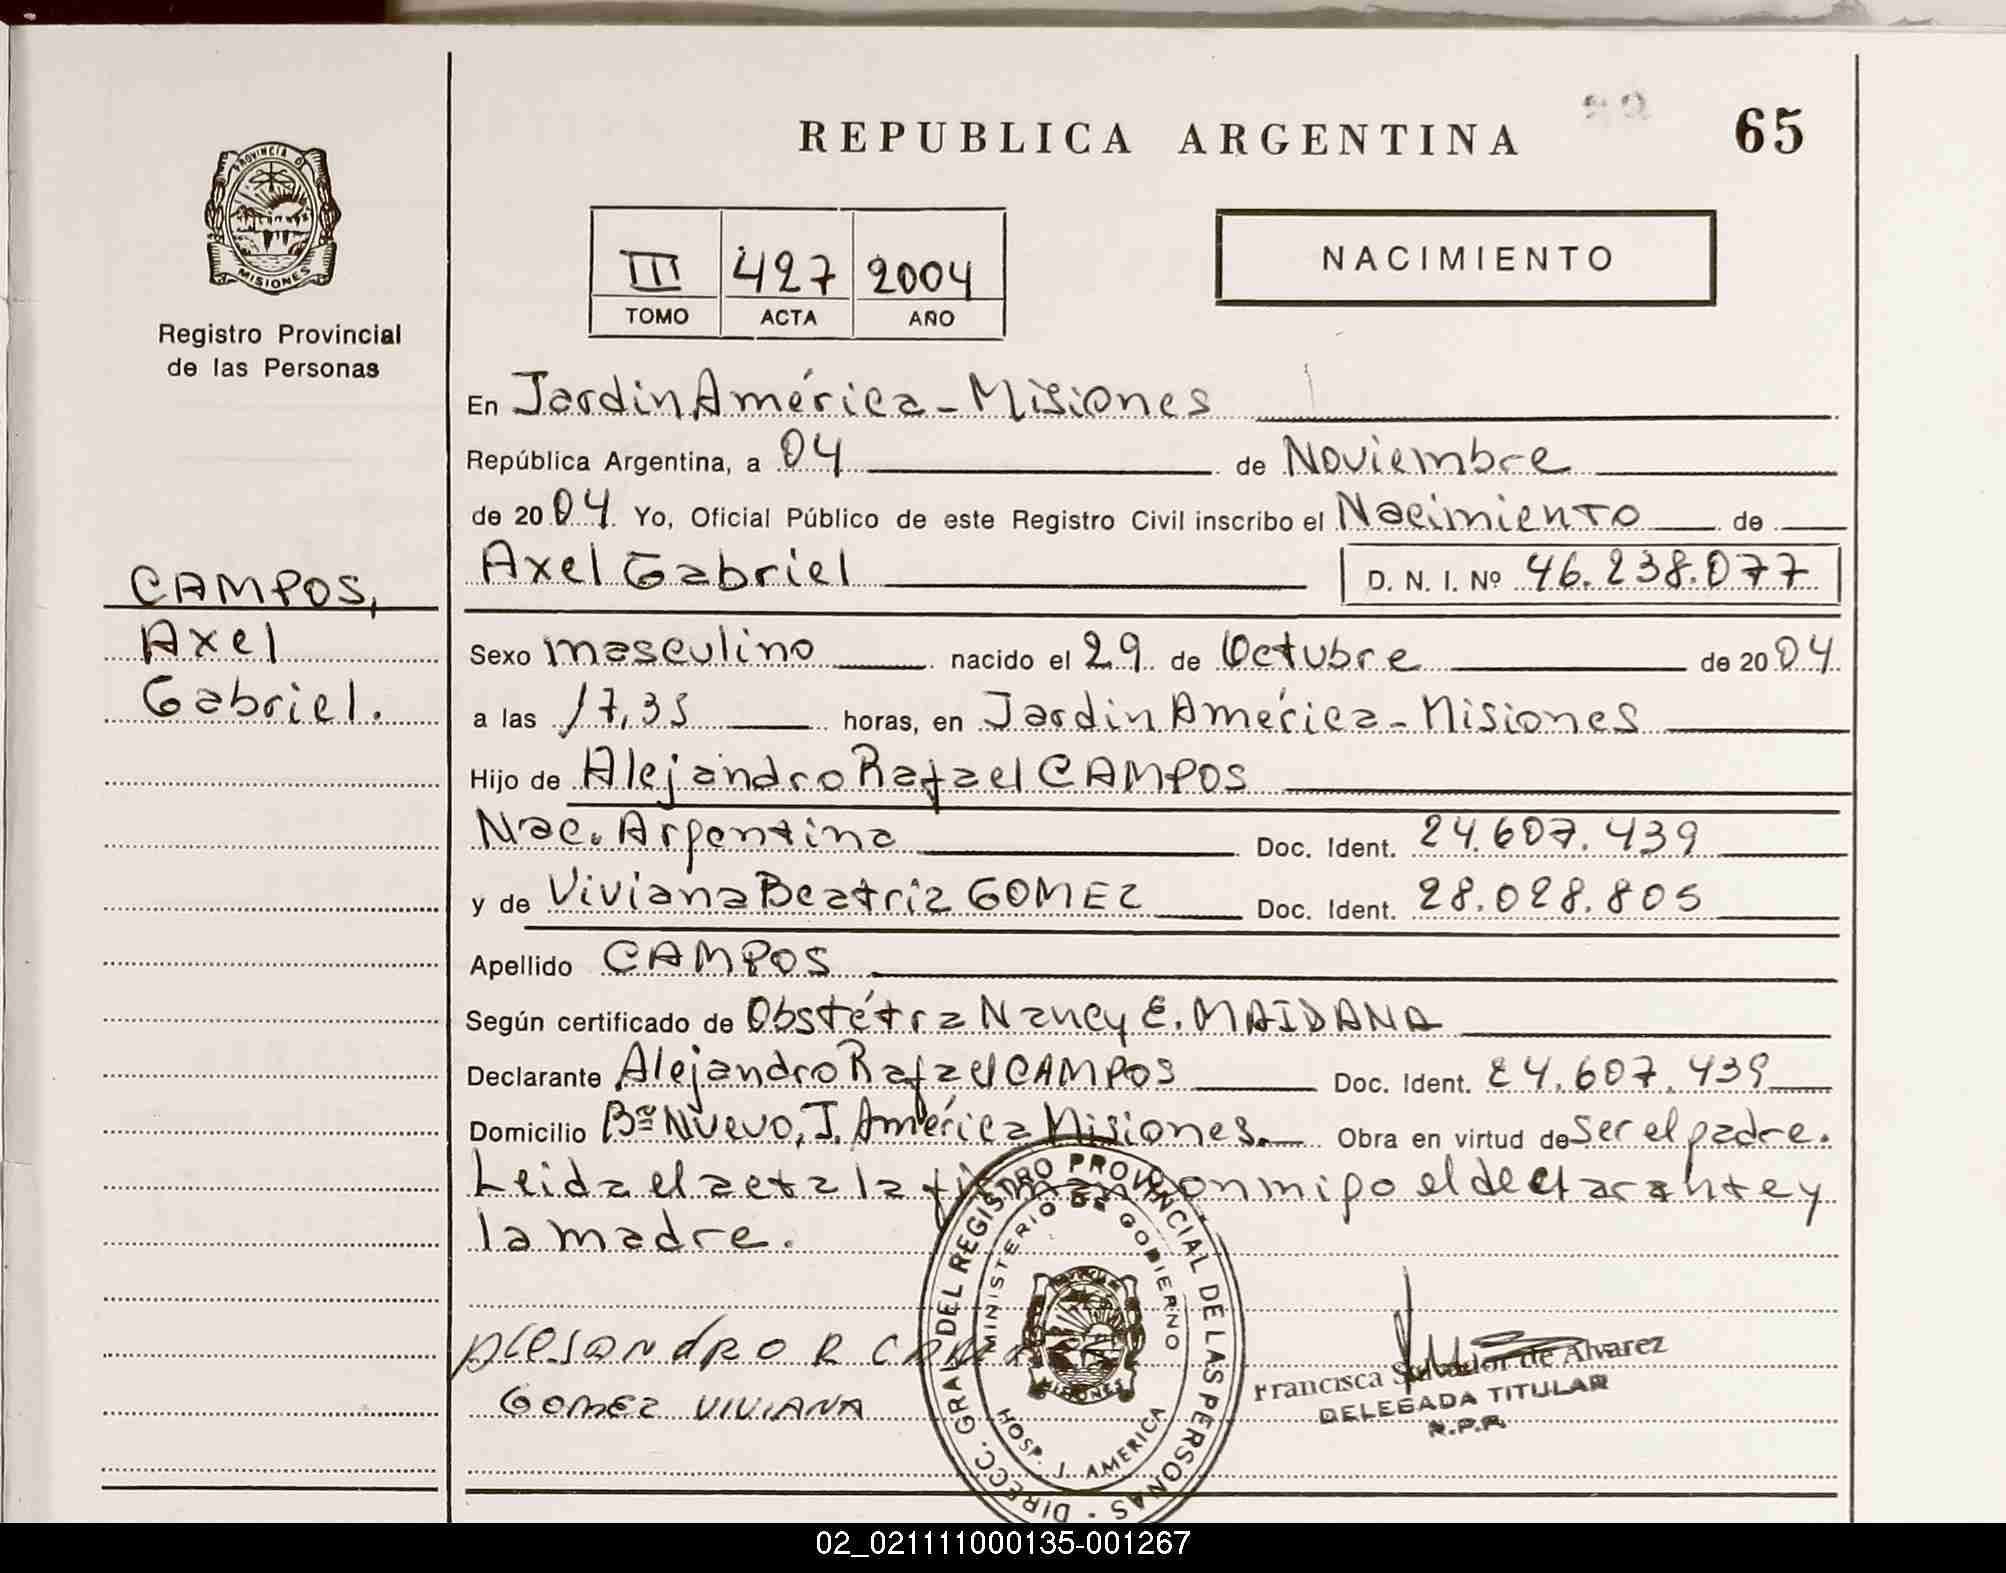 REPUBLICA ARGENTINA
65
PROVINCIA D
MISIONES
Registro Provincial
de las Personas
III 427 2004
TOMO ACTA AÑO
NACIMIENTO
En Jardin América - Misiones
República Argentina, a 04 de Noviembre
de 2004. Yo, Oficial Público de este Registro Civil inscribo el Nacimiento de
Axel Gabriel D. N. I. Nº 46.238.077
CAMPOS,
Axel
Gabriel.
Sexo masculino nacido el 29 de Octubre de 2004
a las 17,35 horas, en Jardin América - Misiones
Hijo de Alejandro Rafael CAMPOS
Nac. Argentina Doc. Ident. 24.607.439
y de Viviana Beatriz GOMEZ Doc. Ident. 28.028.805
Apellido CAMPOS
Según certificado de Obstétra Nancy E. MAIDANA
Declarante Alejandro Rafael CAMPOS Doc. Ident. 24.607.439
Domicilio Bº Nuevo, J. América Misiones. Obra en virtud de Ser el padre.
Leida el acta la firman conmigo el declarante y
la madre.
DIRECC. GRAL DEL REGISTRO PROVINCIAL DE LAS PERSONAS
MINISTERIO DE GOBIERNO
MISIONES
HOSP. J. AMERICA
GOMEZ VIVIANA
Francisca Salvador de Alvarez
DELEGADA TITULAR
R.P.P.
02_021111000135-001267